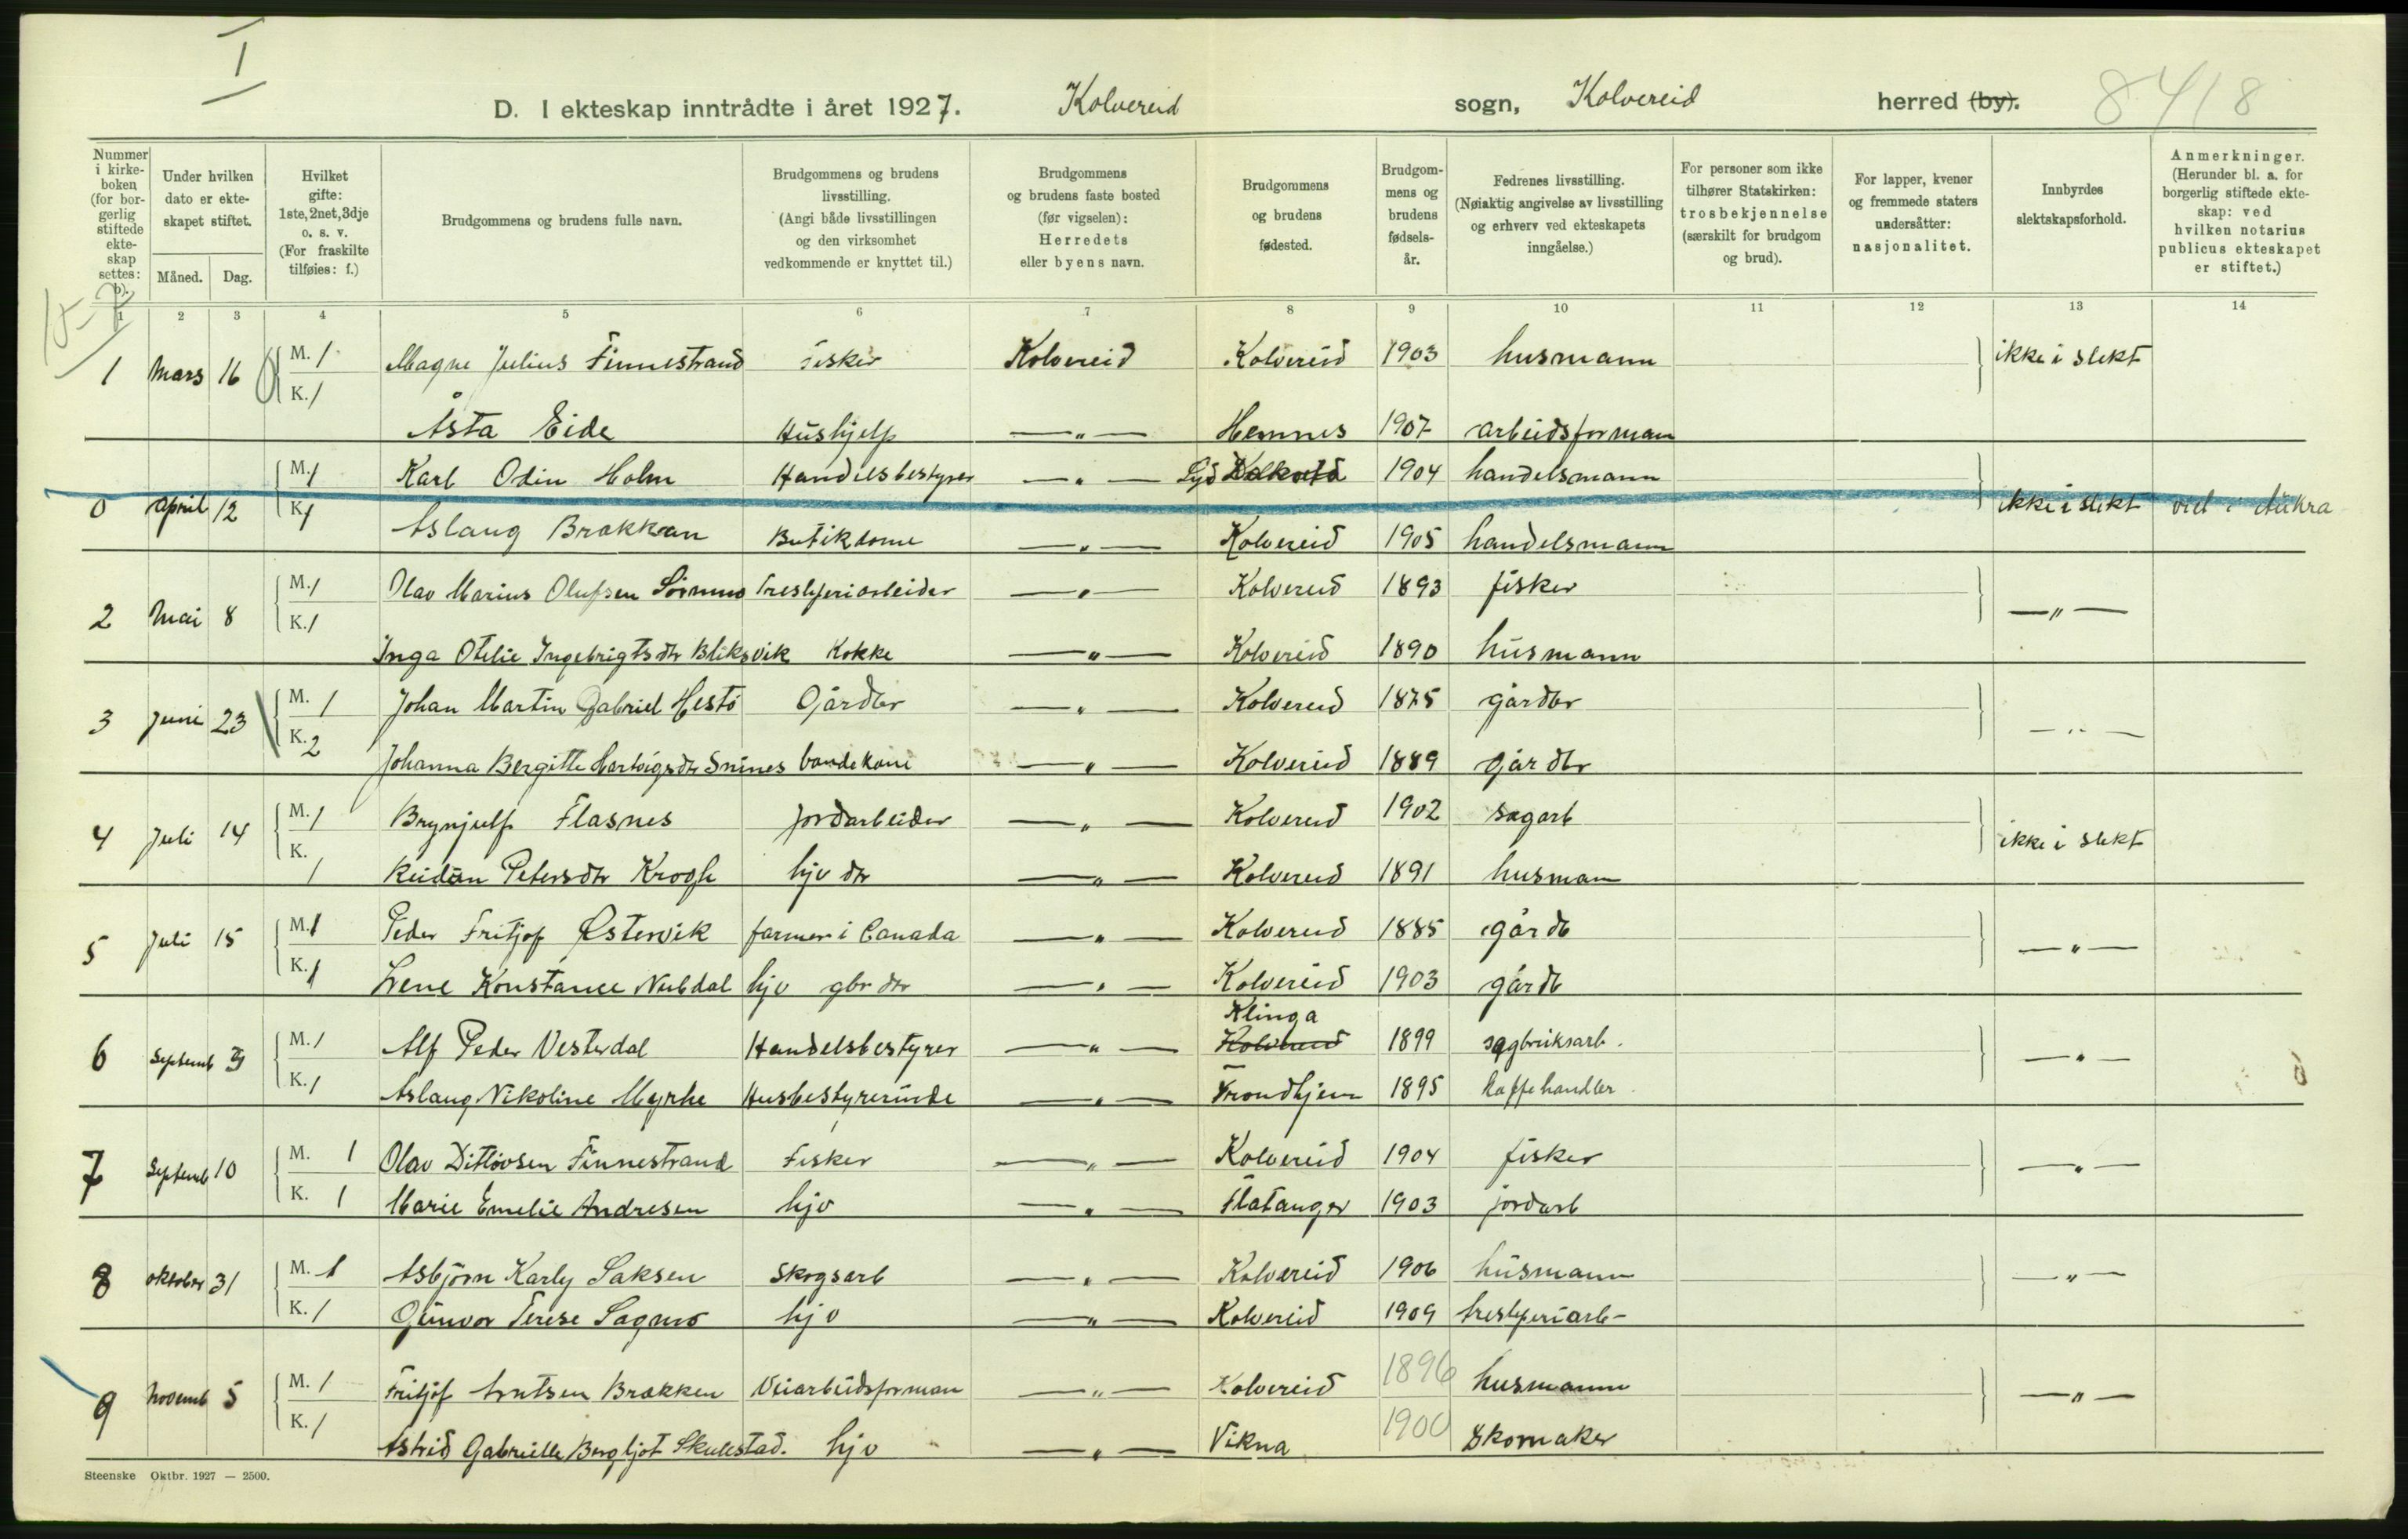 I
D. I ekteskap inntrådte i året 1927. Kolvereid sogn, Kolvereid herred (by). 8418
Nummer i kirkeboken (for borgerlig stiftede ekteskap settes: b).
Under hvilken dato er ekteskapet stiftet.
Måned. Dag.
Hvilket gifte: 1ste, 2net, 3dje o. s. v. (For fraskilte tilføies: f.)
Brudgommens og brudens fulle navn.
Brudgommens og brudens livsstilling. (Angi både livsstillingen og den virksomhet vedkommende er knyttet til.)
Brudgommens og brudens faste bosted (før vigselen): Herredets eller byens navn.
Brudgommens og brudens fødested.
Brudgommens og brudens fødselsår.
Fedrenes livsstilling. (Nøiaktig angivelse av livsstilling og erhverv ved ekteskapets inngåelse.)
For personer som ikke tilhører Statskirken: trosbekjennelse (særskilt for brudgom og brud).
For lapper, kvener og fremmede staters undersåtter: nasjonalitet.
Innbyrdes slektskapsforhold.
Anmerkninger. (Herunder bl. a. for borgerlig stiftede ekteskap: ved hvilken notarius publicus ekteskapet er stiftet.)
1 2 3 4 5 6 7 8 9 10 11 12 13 14
1 Mars 16 M. 1 Magne Julius Finnestrand Fisker Kolvereid Kolvereid 1903 husmann ikke i slekt
K. 1 Åsta Eide Hushjelp —„— Hemnes 1907 arbeidsforman
0 April 12 M. 1 Karl Odin Holm Handelsbestyrer —„— 1904 handelsmann ikke i slekt
K. 1 Aslaug Brakkan Butikdame —„— Kolvereid 1905 handelsmann
2 Mai 8 M. 1 Olav Marius Olufsen Sørmo Tresliperiarbeider —„— Kolvereid 1893 fisker —„—
K. 1 Inga Otelie Ingebrigtsdtr Bliksvik Kokke —„— Kolvereid 1890 husmann
3 Juni 23 M. 1 Johan Martin Gabriel Hestø Gårdbr —„— Kolvereid 1875 gårdbr —„—
K. 2 Johanna Bergitte Hartvigsdtr bondekone —„— Kolvereid 1889 gårdbr
4 Juli 14 M. 1 Brynjulf Flasnes Jordarbeider —„— Kolvereid 1902 sagarb ikke i slekt
K. 1 Reidun Petersdtr Krogh hjv dtr —„— Kolvereid 1891 husman
5 Juli 15 M. 1 Peder Fritjof Østervik farmer i Canada —„— Kolvereid 1885 gårdb —„—
K. 1 Lene Konstance Nubdal hjv gbr dtr —„— Kolvereid 1903 gårdb
Klinga
6 Septemb 3 M. 1 Alf Peder Vesterdal Handelsbestyrer —„— Kolvereid 1899 sagbruksarb. —„—
K. 1 Aslaug Nikoline Myrhe Husbestyrerinde —„— Trondhjem 1895 kaffehandler
7 Septemb 10 M. 1 Olav Ditløvsen Finnestrand Fisker —„— Kolvereid 1904 fisker —„—
K. 1 Marie Emelie Andresen hjv —„— Flatanger 1903 jordarb
8 oktober 31 M. 1 Asbjørn Karly Saksen Skogsarb —„— Kolvereid 1906 husmann —„—
K. 1 Gunvor Terese Sagmo hjv —„— Kolvereid 1909 tresliperiarb-
9 Novemb 5 M. 1 Fritjof Arntsen Brækken Veiarbeidsforman —„— Kolvereid 1896 husmann —„—
K. 1 Astrid Gabrielle Bergljot Skulestad. hjv —„— Vikna 1900 Skomaker
Steenske Oktbr. 1927 — 2500.